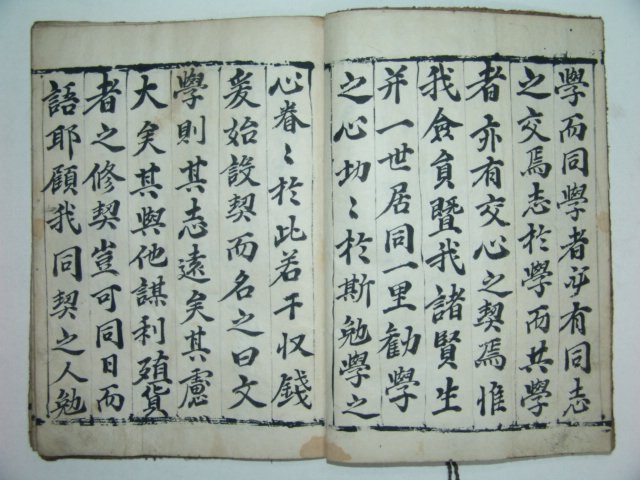 學而同學者亦有同志
之交焉志於學而共學
者亦有交心之契焉惟
我僉員曁我諸賢生
并一世居同一里勸學
之心切〻於斯勉學之
心眷〻於此若干収錢
爰始設契而名之曰文
學則其志遠矣其慮
大矣其與他謀利殖貨
者之修契豈可同日而
語耶顧我同契之人勉